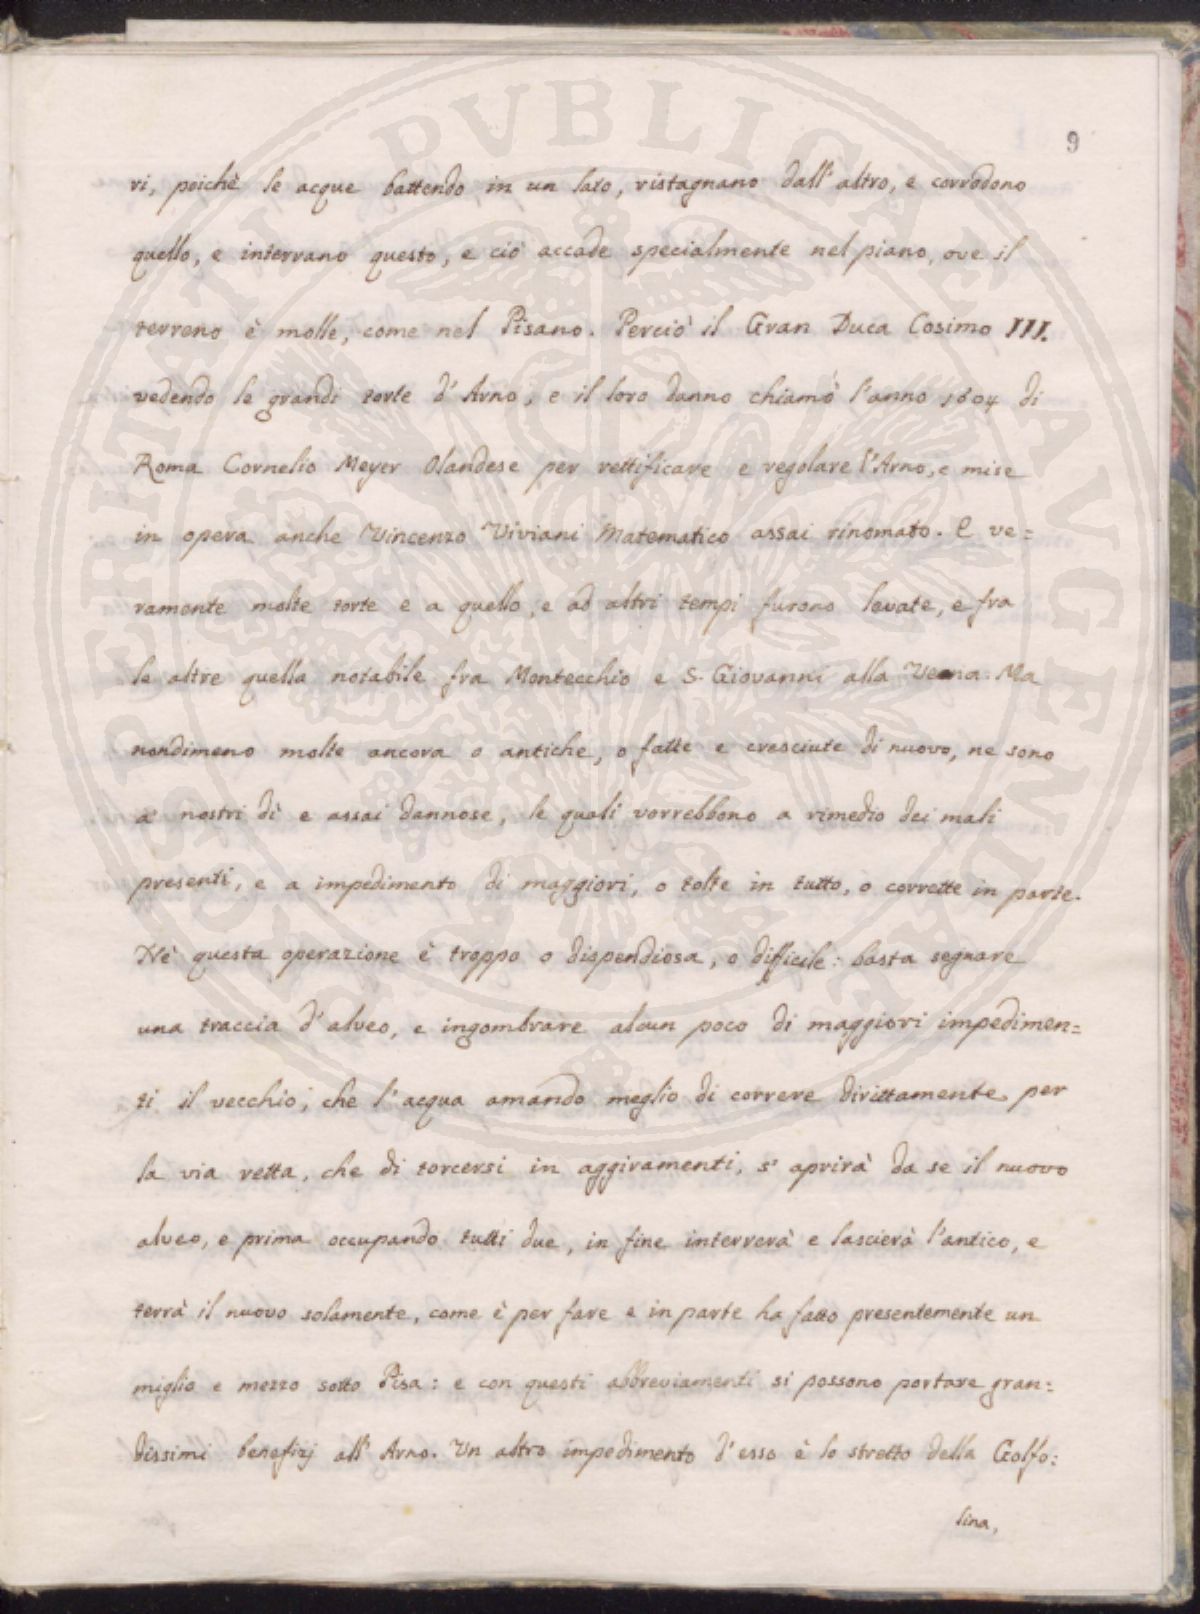 9
ri, poichè le acque battendo in un lato, ristagnano dall' altro, e corrodono
quello, e interrano questo, e ciò accade specialmente nel piano, ove il
terreno è molle, come nel Pisano. Perciò il Gran Duca Cosimo III.
vedendo le grandi torte d' Arno, e il loro danno chiamò l'anno 1604 di
Roma Cornelio Meyer Olandese per rettificare e regolare l'Arno, e mise
in opera anche Vincenzo Viviani Matematico assai rinomato. E ve=
ramente molte torte e a quello, e ad altri tempi furono levate, e fra
le altre quella notabile fra Montecchio e S. Giovanni alla Vena. Ma
nondimeno molte ancora o antiche, o fatte e cresciute di nuovo, ne sono
a' nostri dì e assai dannose, le quali vorrebbono a rimedio dei mali
presenti, e a impedimento di maggiori, o tolte in tutto, o corrette in parte.
Nè questa operazione è troppo o dispendiosa, o difficile: basta segnare
una traccia d' alveo, e ingombrare alcun poco di maggiori impedimen=
ti il vecchio; che l' acqua amando meglio di correre dirittamente per
la via retta, che di torcersi in aggiramenti, s' aprirà da se il nuovo
alveo, e prima occupando tutti due, in fine interrerà e lascierà l'antico, e
terrà il nuovo solamente, come è per fare e in parte ha fatto presentemente un
miglio e mezzo sotto Pisa: e con questi abbreviamenti si possono portare gran=
dissimi benefizj all' Arno. Un altro impedimento d' esso è lo stretto della Golfo:
lina,
PROSPERITATI PVBLICAE AVGENDAE